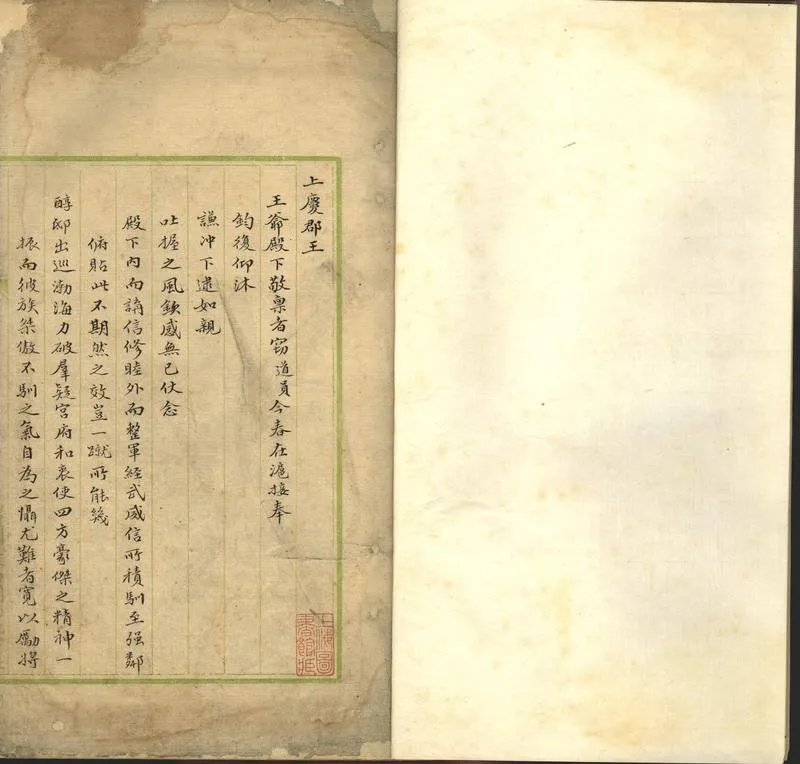 上慶郡王
王爺殿下敬禀者竊道員今春在滬接奉
鈞復仰沐
謙冲下逮如親
吐握之風欽感無已伏念
殿下內而講信修睦外而整軍經武威信所積馴至强鄰
俯貼此不期然之效豈一蹴所能幾
醇邸出巡渤海力破羣疑宮府和衷使四方豪傑之精神一
振而彼族桀傲不馴之氣自為之懾尤難者寬以勵將
上海圖
書館藏